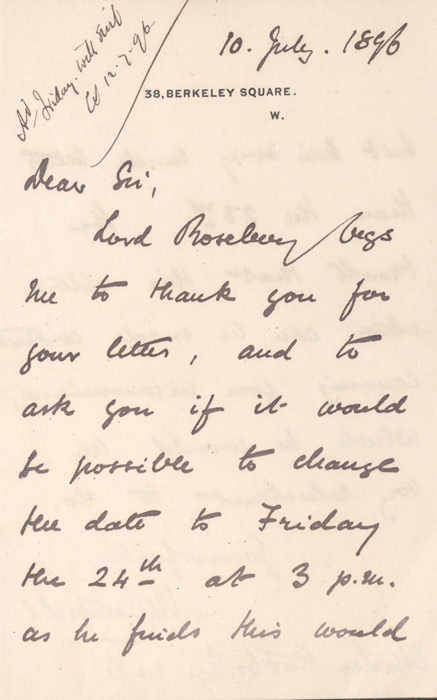 Friday. will suit
12.7.96
10. July. 1896
38, BERKELEY SQUARE.
W.
Dear Sir,
Lord Rosebery begs
me to thank you for
your letter, and to
ask you if it would
be possible to change
the date to Friday
the 24th at 3 p.m.
as he finds this would